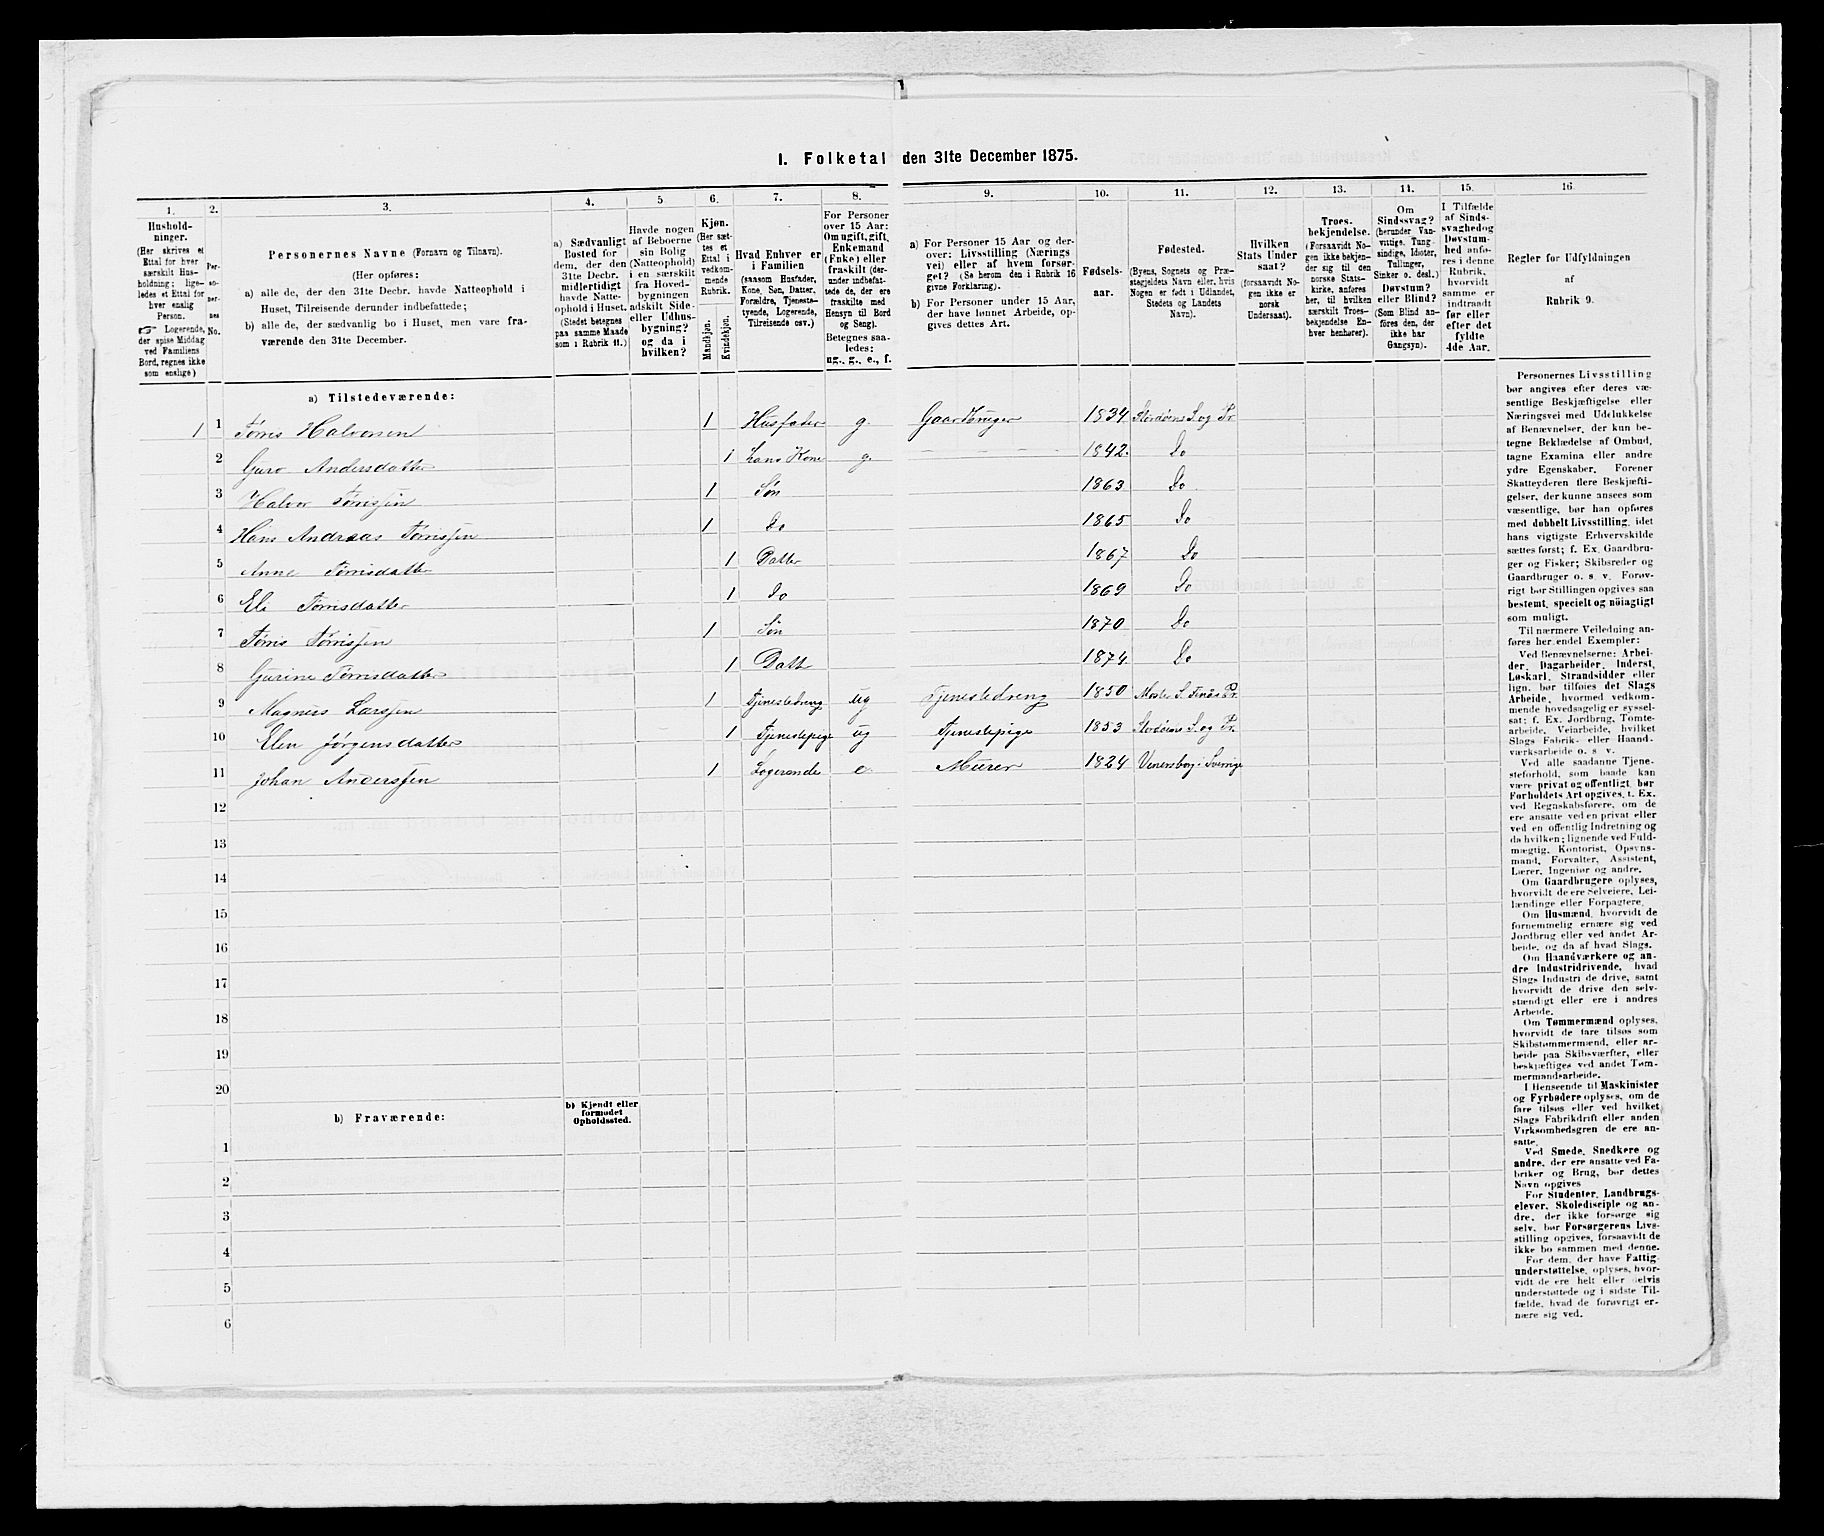 I. Folketal den 31te December 1875.
1. 2. 3. 4. 5 6. 7. 8. 9. 10. 11. 12. 13. 14. 15. 16.
Husholdninger.
(Her skrives et Ettal for hver særskilt Husholdning; ligeledes et Ettal for hver enslig Person.
☞ Logerende, der spise Middag ved Familiens Bord, regnes ikke som enslige)
Personernes No.
Personernes Navne (Fornavn og Tilnavn).
(Her opføres:
a) alle de, der den 31te Decbr. havde Natteophold i Huset, Tilreisende derunder indbefattede;
b) alle de, der sædvanlig bo i Huset, men vare fraværende den 31te December.
a) Sædvanligt Bosted for dem, der den 31te Decbr. midlertidigt havde Natteophold i Huset. (Stedet betegnes paa samme Maade som i Rubrik 11.)
Havde nogen af Beboerne sin Bolig (Natteophold) i en særskilt fra Hovedbygningen adskilt Side- eller Udhusbygning? og da i hvilken?
Kjøn. (Her sættes et Ettal i vedkommende Rubrik.
Mandkjøn.
Kvindekjøn.
Hvad Enhver er i Familien (saasom Husfader, Kone, Søn, Datter, Forældre, Tjenestetyende, Logerende, Tilreisende osv.)
For Personer over 15 Aar: Om ugift, gift, Enkemand (Enke) eller fraskilt (derunder indbefattede de, der ere fraskilte med Hensyn til Bord og Seng). Betegnes saaledes: ug., g., e., f.
a) For Personer 15 Aar og derover: Livsstilling (Næringsvei) eller af hvem forsørget? (Se herom den i Rubrik 16 givne Forklaring).
b) For Personer under 15 Aar, der have lønnet Arbeide, opgives dettes Art.
Fødselsaar.
Fødested.
(Byens, Sognets og Præstegjeldets Navn eller, hvis Nogen er født i Udlandet, Stedets og Landets Navn).
Hvilken Stats Undersaat?
(forsaavidt Nogen ikke er norsk Undersaat).
Troesbekjendelse.
(Forsaavidt Nogen ikke bekjender sig til den norske Statskirke, anføres her, til hvilken særskilt Troesbekjendelse Enhver henhører).
Om Sindssvag? (herunder Vanvittige, Tungsindige, Idioter, Tullinger, Sinker o. desl.) Døvstum? eller Blind? (Som Blind anføres den, der ikke har Gangsyn).
I Tilfælde af Sindssvaghed og Døvstumhed anføres i denne Rubrik, hvorvidt samme er indtraadt før eller efter det fyldte 4de Aar.
Regler for Udfyldningen af Rubrik 9.
a) Tilstedeværende:
1 1 Tørris Halvorsen 1 Husfader g. Gaardbruger 1834 Stordøens S. og Pr.
2 Guro Andersdatter 1 hans Kone g. 1842. Do
3 Halvor Tørrissen 1 Søn 1863 Do
4 Hans Andreas Tørrissen 1 Do 1865 Do
5 Anne Tørrisdatter 1 Datter 1867 Do
6 Eli Tørrisdatter 1 do 1869 Do
7 Tørris Tørrissen 1 Søn 1870 Do
8 Gurine Tørrisdatter 1 Datt 1874 Do
9 Magnus Larssen 1 Tjenestedreng ug Tjenestedreng 1850 Moster S. Finås Pr.
10 Elen Jørgensdatter 1 Tjenestepige ug Tjenestepige 1853 Stordøens S. og Pr.
11 Johan Anderssen 1 Logerende e Murer 1824 Venersborg i Sverige
12
13
14
15
16
17
18
19
20
b) Fraværende:
b) Kjendt eller formodet Opholdssted.
1
2
3
4
5
6
Personernes Livsstilling
bør angives efter deres væ-
sentlige Beskjæftigelse eller
Næringsvei med Udelukkelse
af Benævnelser, der kun be-
tegne Beklædelse af Ombud,
tagne Examina eller andre
ydre Egenskaber. Forener
Skatteyderen flere Beskjæfti-
gelser, der kunne ansees som
væsentlige, bør han opføres
med dobbelt Livsstilling, idet
hans vigtigste Erhvervskilde
sættes først; f. Ex. Gaardbru-
ger og Fisker; Skibsreder og
Gaardbruger o. s. v. Forøv-
rigt bør Stillingen opgives saa
bestemt, specielt og nöiagtigt
som muligt.
Til nærmere Veiledning an-
føres her endel Exempler:
Ved Benævnelserne: Arbei-
der, Dagarbeider, Inderst,
Løskarl, Strandsidder eller
lign. bør tilføies det Slags
Arbeide, hvormed vedkom-
mende hovedsagelig er syssel-
sat; f. Ex. Jordbrug, Tomte-
arbeide, Veiarbeide, hvilket
Slags Fabrik- eller Haand-
værksarbeide o. s. v.
Ved alle saadanne Tjene-
steforhold, som baade kan
være privat og offentligt, bør
Forholdets Art opgives, t. Ex.
ved Regnskabsførere, om de
ere ansatte ved en privat eller
ved en offentlig Indretning og
da hvilken; lignende ved Fuld-
mægtig, Kontorist, Opsyns-
mand, Forvalter, Assistent,
Lærer, Ingeniør og andre.
Om Gaardbrugere oplyses,
hvorvidt de ere Selveiere, Lei-
lændinge eller Forpagtere.
Om Husmænd, hvorvidt de
fornemmelig ernære sig ved
Jordbrug eller ved andet Ar-
beide, og da af hvad Slags.
Om Haandværkere og an-
dre Industridrivende, hvad
Slags Industri de drive, samt
hvorvidt de drive den selv-
stændigt eller ere i andres
Arbeide.
Om Tømmermænd oplyses,
hvorvidt de fare tilsøs som
Skibstømmermænd, eller ar-
beide paa Skibsværfter, eller
beskjæftiges ved andet Tøm-
mermandsarbeide.
I Henseende til Maskinister
og Fyrbødere oplyses, om de
fare tilsøs eller ved hvilket
Slags Fabrikdrift eller anden
Virksomhedsgren de ere an-
satte.
Ved Smede, Snedkere og
andre, der ere ansatte ved Fa-
briker og Brug, bør dettes
Navn opgives
For Studenter, Landbrugs-
elever, Skoledisciple og an-
dre, der ikke forsørge sig
selv, bør Forsørgerens Livs-
stilling opgives, forsaavidt de
ikke bo sammen med denne.
For dem, der have Fattig-
understøttelse, oplyses, hvor-
vidt de ere helt eller delvis
understøttede og i sidste Til-
fælde, hvad de forøvrigt er-
nære sig ved.